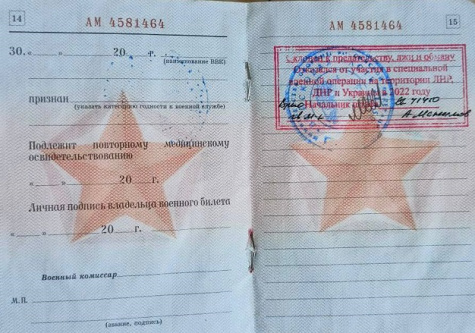 14
АМ 4581464
30. «» 20 г.
(наименование ВВК)
признан
(указать категорию годности к военной службе)
Подлежит повторному медицинскому
освидетельствованию
«» 20 г.
Личная подпись владельца военного билета
«» 20 г.
Военный комиссар
М.П.
(звание, подпись)
АМ 4581464
15
Склонен к предательству, лжи и обману
Отказался от участия в специальной
военной операции на территории ЛНР,
ДНР и Украины в 2022 году
Начальник